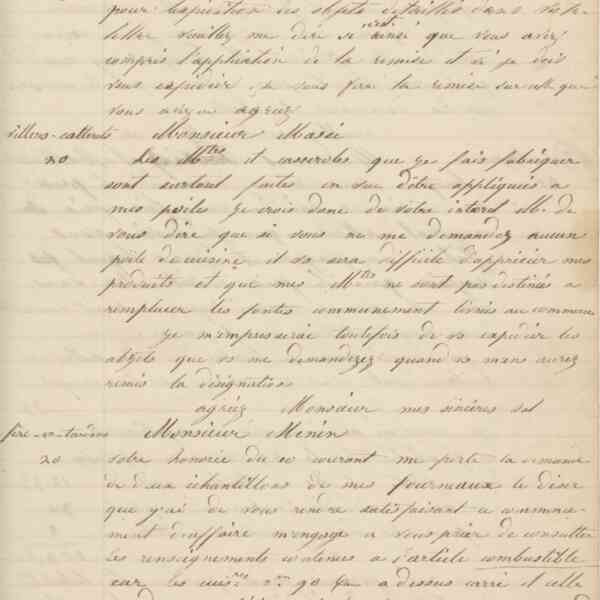 pour expédition des objets détaillés dans votre
lettre veuillez me dire si c'est ainsi que vous avez
compris l'application de la remise et si je dois
vous expédier je vous fera la remise sur celle que
vous avez agréez
villers-cotterets Monsieur Massé
20 Les Mtres et casseroles que je fais fabriquer
sont surtout faites en vue d'être appliqués a
mes poêles je crois donc de votre intéret M. de
vous dire que si vous ne me demandez aucun
poêle de cuisine il vs sera difficile d'apprécier mes
produits et que mes Mtes ne sont pas destinés a
remplacer les fontes communément livrés au commerce
je m'empresserai toutefois de vs expédier les
objets que vs me demanderez quand vs m'ans aurez
remis la désignation
agréez Monsieur mes sincères sal
fère-en-tardenois Monsieur Menin
20 votre honorée du 10 courant me porte la demande
de deux échantillons de mes fourneaux le désir
que j'ai de vous rendre satisfaisant ce commence-
ment d'affaire m'engage a vous prier de consulter
les renseignements contenus a l'article combustible
car les cuisres 90 a dessus carré et celle